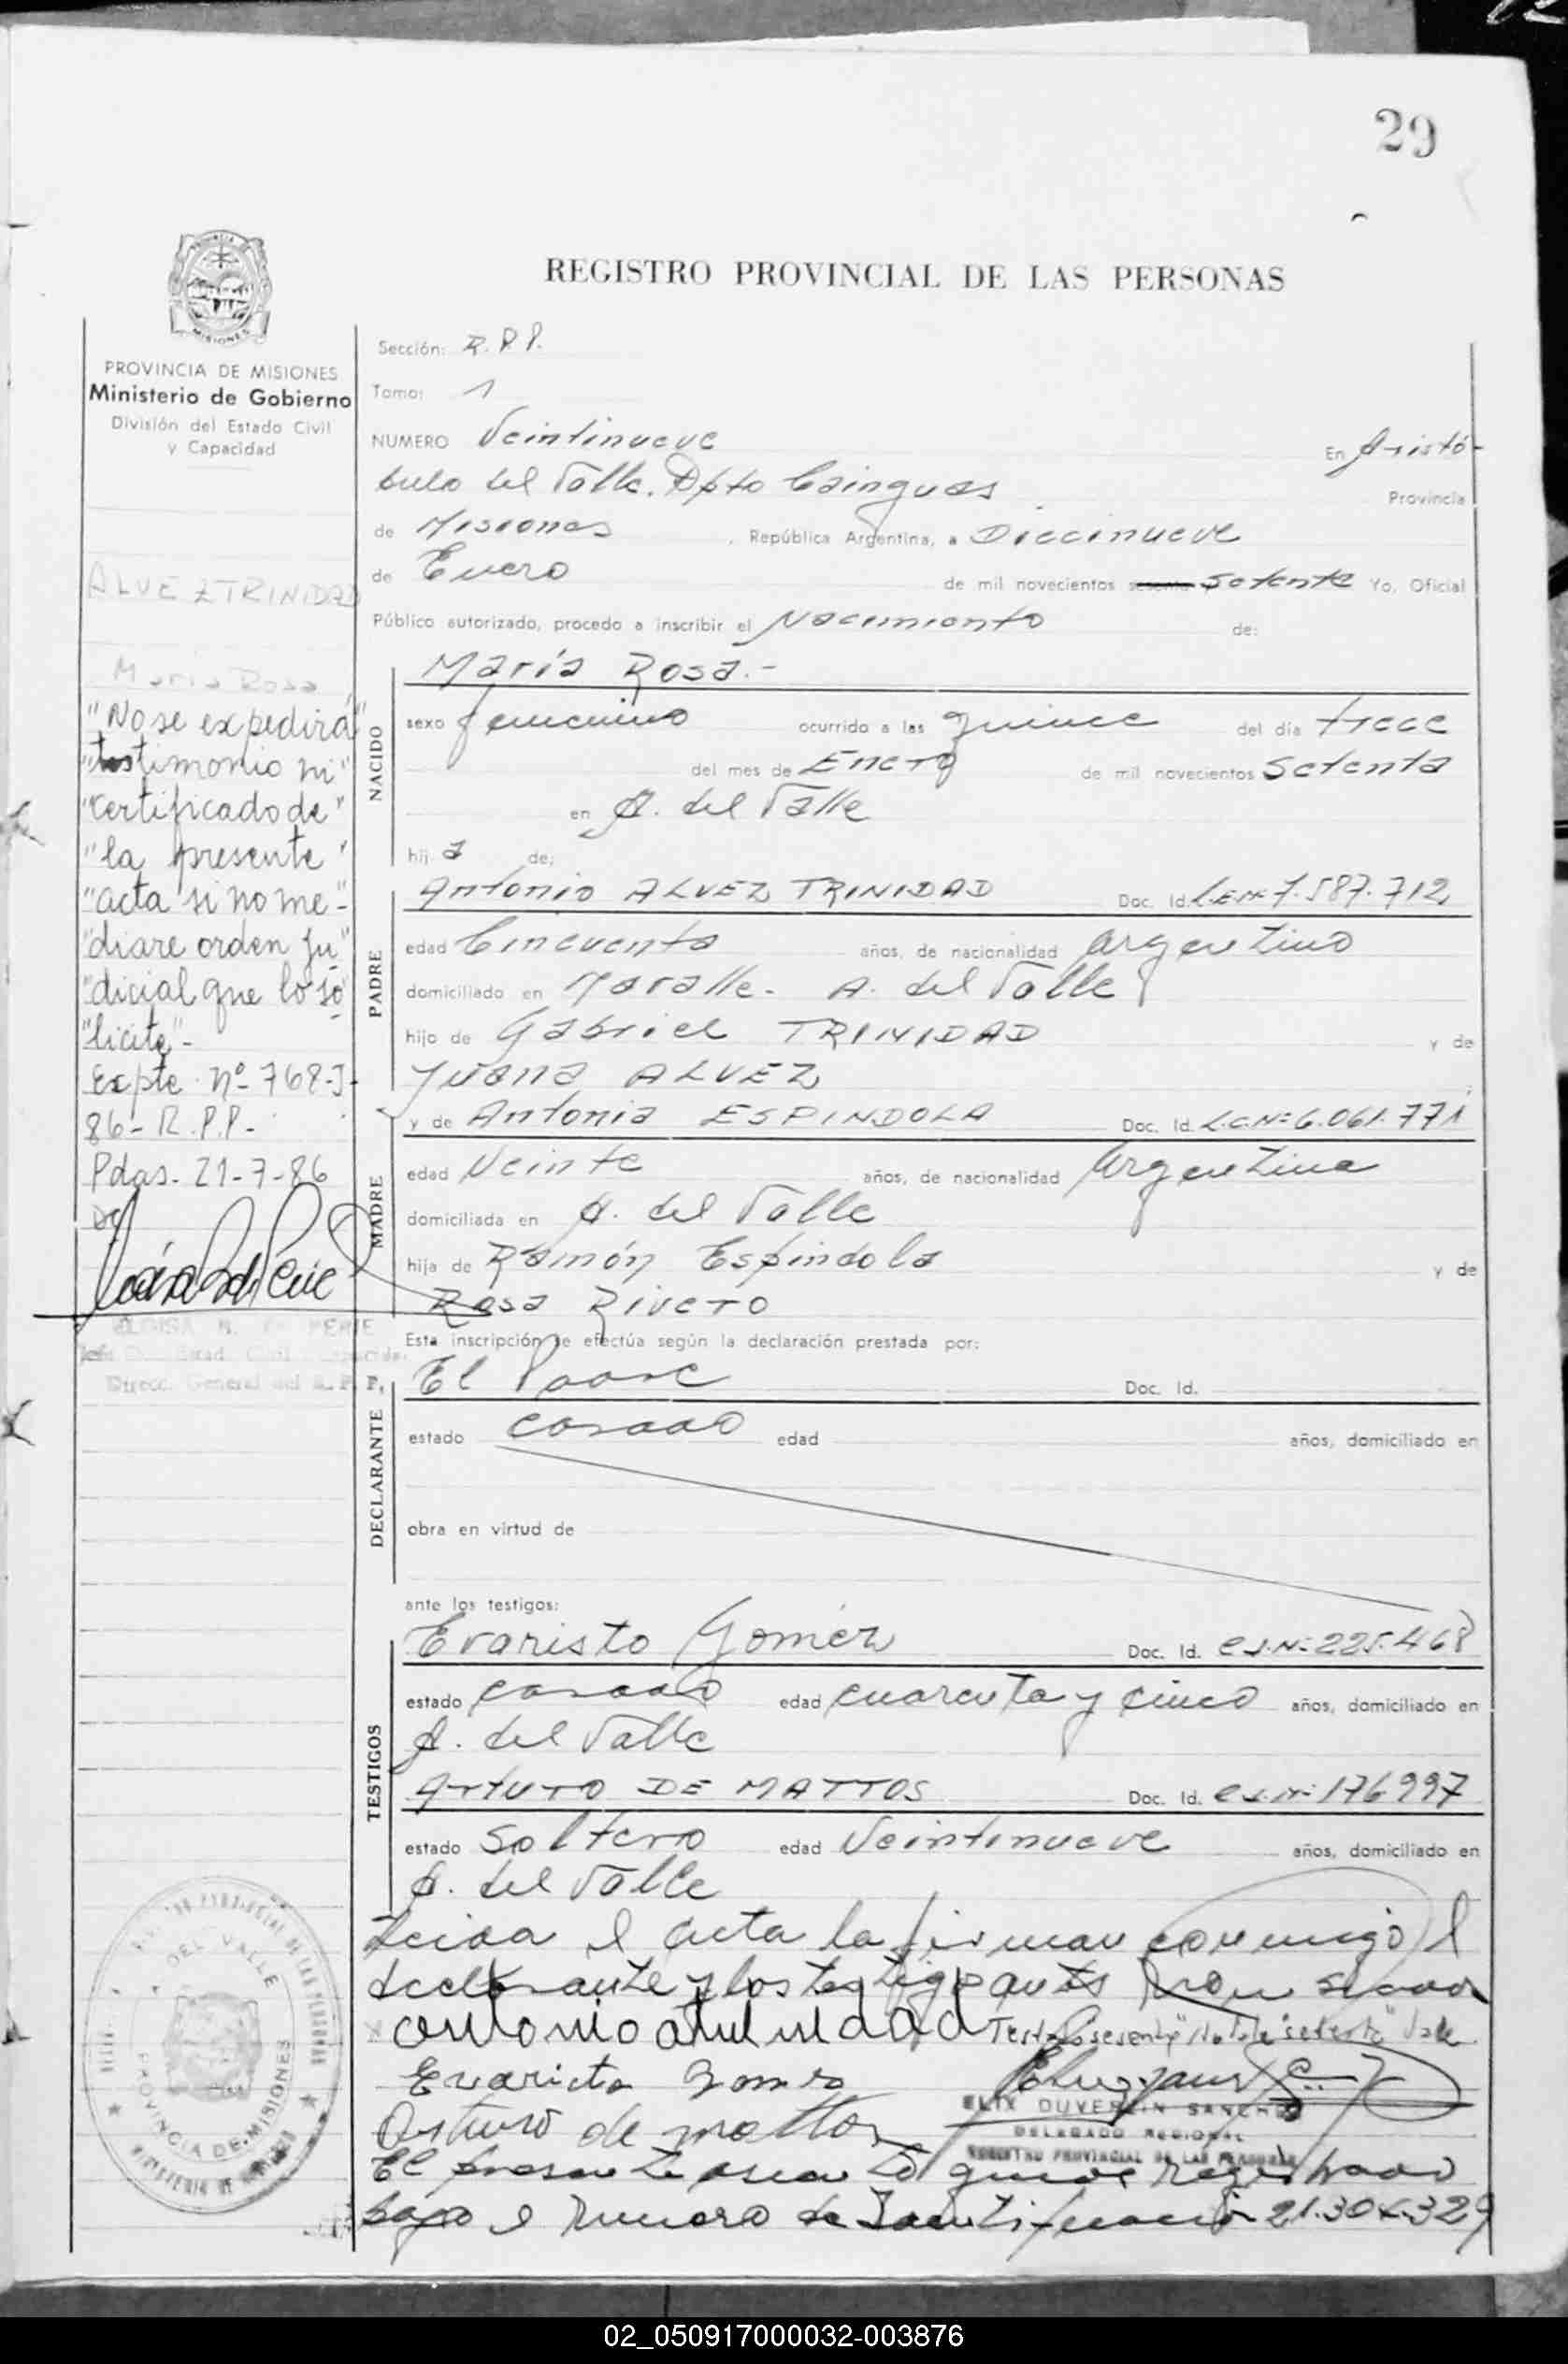 29
REGISTRO PROVINCIAL DE LAS PERSONAS
MISIONES
PROVINCIA DE MISIONES
Ministerio de Gobierno
División del Estado Civil
y Capacidad
ALVEZ TRINIDAD
Maria Rosa
"No se expedirá"
"testimonio ni"
"certificado de"
"la presente"
"acta si no me-"
"diare orden ju"
"dicial que lo so
"licite"-
Expte. nº 768-J-
86-R.P.P.-
Pdas. 21-7-86
Direcc. General del R. P. P.
Sección: R.P.P.
Tomo: 1
NUMERO Veintinueve En Aristó-
bulo del Valle. Dpto Cainguas Provincia
de Misiones , República Argentina, a Diecinueve
de Enero de mil novecientos sesenta setenta Yo, Oficial
Público autorizado, procedo a inscribir el Nacimiento de:
NACIDO
María Rosa.-
sexo femenino ocurrido a las quince del día trece
del mes de Enero de mil novecientos setenta
en A. del Valle
hij a de:
PADRE
Antonio ALVEZ TRINIDAD Doc. Id. L.E.Nº 7.587.712
edad Cincuenta años, de nacionalidad argentino
domiciliado en A. del Valle
hijo de Gabriel TRINIDAD y de
Juana ALVEZ
MADRE
y de Antonia ESPINDOLA Doc. Id. L.C.Nº 6.061.771
edad Veinte años, de nacionalidad Argentina
domiciliada en A. del Valle
hija de Ramón Espindola y de
Rosa Rivero
Esta inscripción se efectúa según la declaración prestada por:
DECLARANTE
El Padre Doc. Id.
estado casado edad años, domiciliado en
obra en virtud de
ante los testigos:
TESTIGOS
Evaristo Gómez Doc. Id. C.I.Nº 225.468
estado casado edad cuarenta y cinco años, domiciliado en
A. del Valle
Arturo DE MATTOS Doc. Id. C.I.Nº 176997
estado soltero edad Veintinueve años, domiciliado en
A. del Valle
Leida el acta la firman conmigo el
declarante y los testigos
Testado "sesenta" "setenta" Vale
Evaristo Gomez
Arturo de mattos
DUVERLIN SANCHEZ
DELEGADO REGIONAL
REGISTRO PROVINCIAL DE LAS PERSONAS
A. DEL VALLE
PROVINCIA DE MISIONES
El presente asiento queda registrado
bajo el Numero de Identificación 21.304.329
02_050917000032-003876